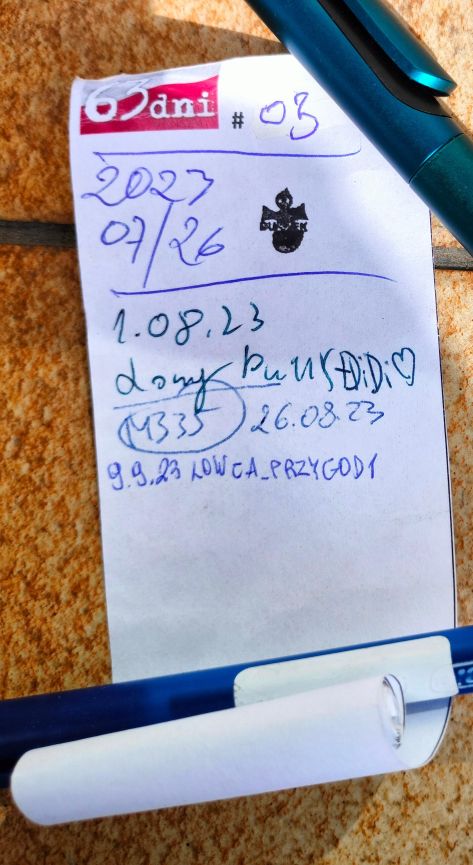 63 dni # 03
2023
07/26
1.08.23
ĐiĐi♡
M335 26.08.23
9.9.23 ŁOWCA_PRZYGOD1